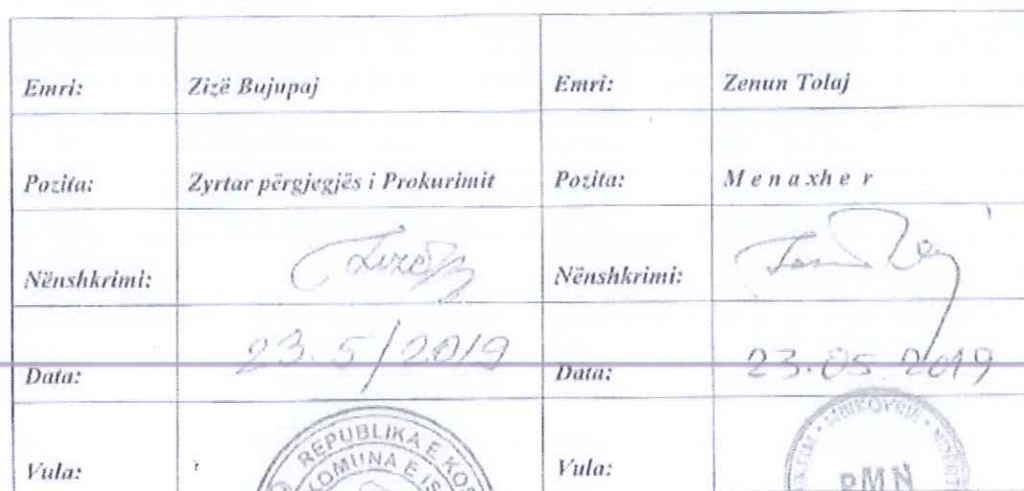 Emri: Zizë Bujupaj Emri: Zenun Tolaj
Pozita: Zyrtar përgjegjës i Prokurimit Pozita: Menaxher
Nënshkrimi: Nënshkrimi:
Data: 23.5/2019 Data: 23.05 2019
Vula: Vula:
REPUBLIKA E KOS
KOMUNA E IS
MBIKQYRJE
PMN